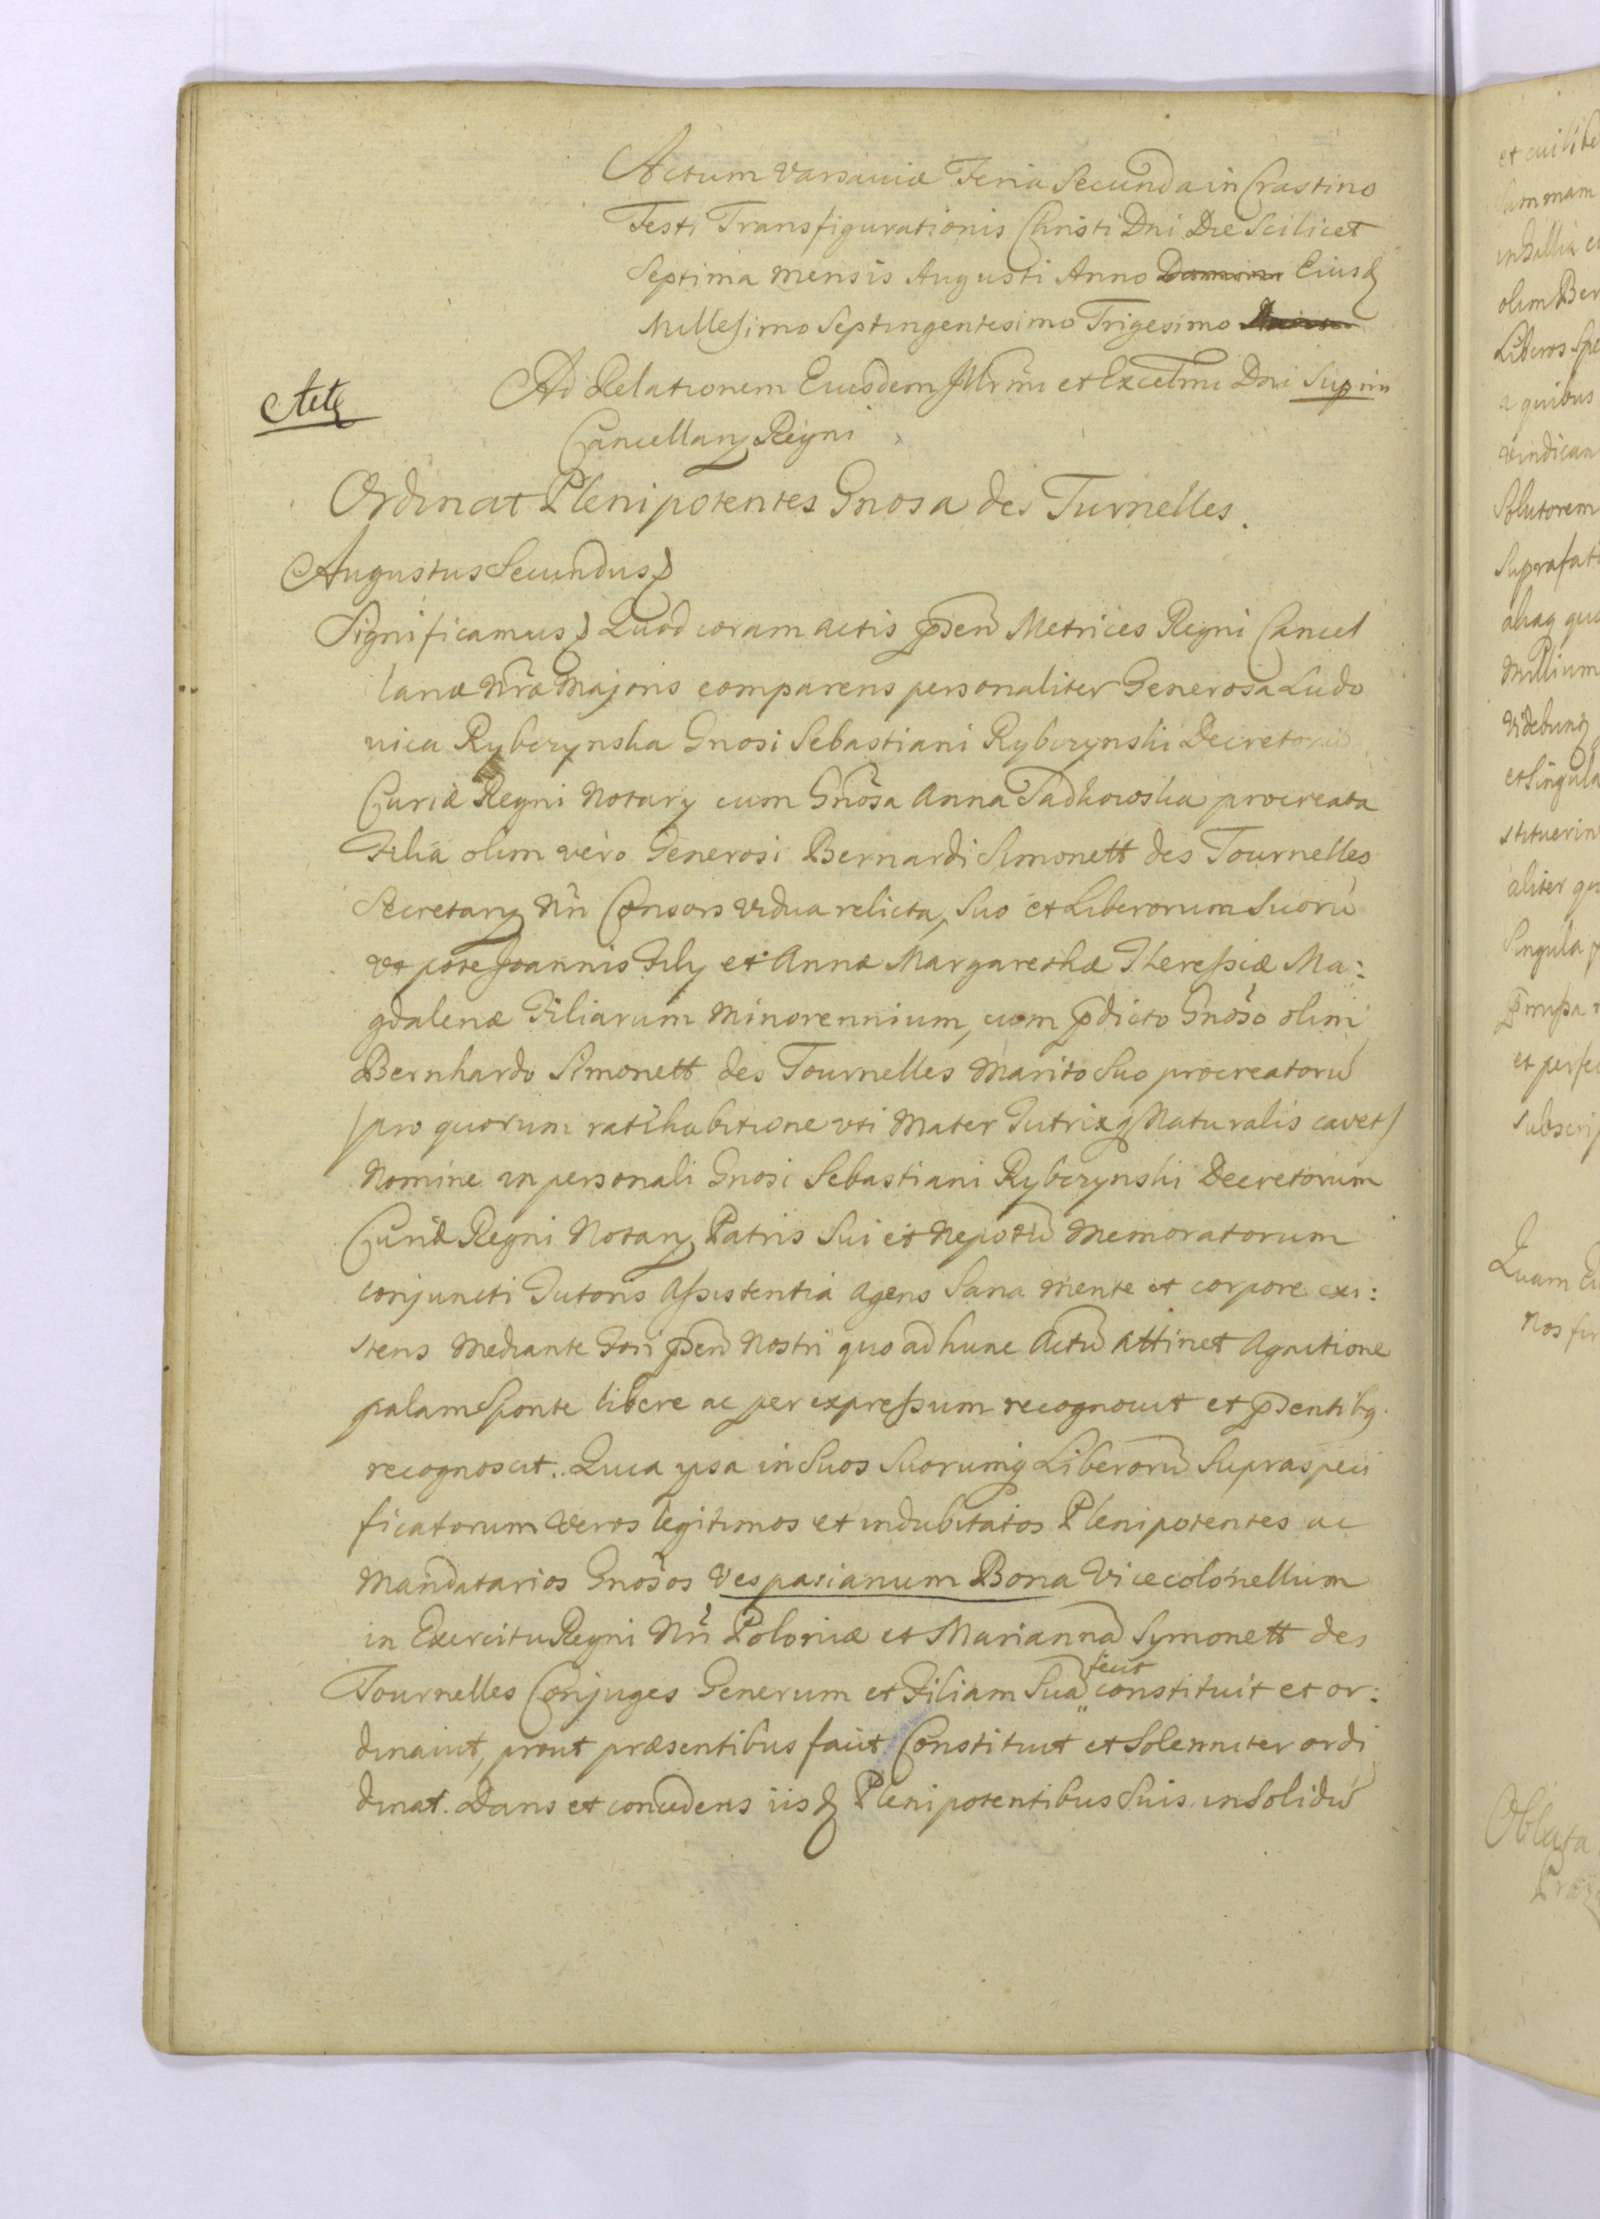 Actum Varsaviæ Feria Secunda in Crastino
Festi Transfigurationis Christi Dni Die Scilicet
Septima mensis Augusti Anno Domini Eiusd
Millesimo Septingentesimo Trigesimo
Ad Relationem Eiusdem Illrmi et Excelmi Dni Supmi
Cancellarij Regni
Ordinat Plenipotentes Gnosa des Turnelles.
Augustus Secundus
Significamus Quod coram actis Metrices Regni Cancel
lariæ Nræ Majoris comparens personaliter Generosa Ludo
vica Rybczynska Gnosi Sebastiani Rybczynski Decretorum
Curiæ Regni Notary cum Gnosa Anna Tadkowska procreata
Filia olim vero Generosi Bernardi Simonett des Tournelles
Secretary Nri Consors Vidua relicta, Suo et Liberorum Suorū
vt pote Joannis Fily et Annæ Margarethæ Theressiæ Ma:
gdalenæ Filiarum Minorennium, cum pdicto Gnoso olim
Bernhardo Simonett des Tournelles Marito Suo procreatorū
/pro quorum ratihabitione vti Mater Tutrixq Naturalis cavet/
Nomine in personali Gnosi Sebastiani Rybczynski Decretorum
Curiæ Regni Notary Patris Sui et Nepotū Memoratorum
conjuncti Tutoris Assistentia Agens Sana mente et corpore exi:
stens Mediante Fori Nostri quo ad hunc Actū Attinet Agnitione
palam Sponte libere ac per expressum recognovit et pdentibq.
recognoscit. Quia ipsa in Suos Suorumq Liberorū Supraspeci
ficatorum Veros legitimos et indubitatos Plenipotentes ac
Mandatarios Gnosos Vespasianum Bona Vicecolonellum
in Exercitu Regni Nri Poloniæ et Mariannā Symonett des
Tournelles Conjuges Generum et Filiam Suā fecit constituit et or:
dinavit, prout præsentibus facit Constituit et Solemniter ordi
dinat. Dans et concedens iisd Plenipotentibus Suis in Solidū